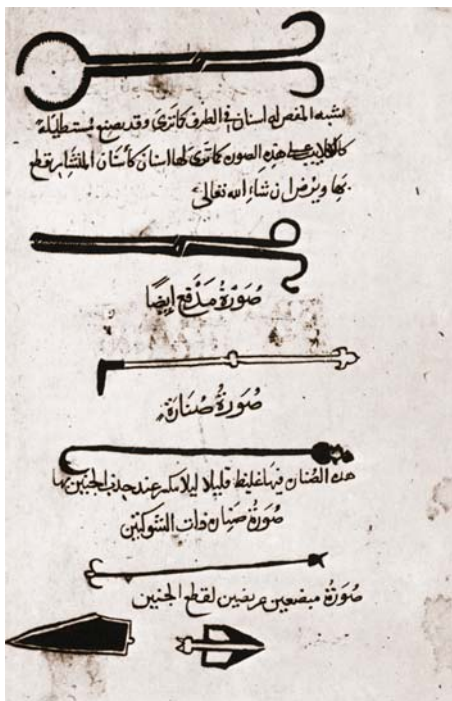 يشبه المقص له اسنان في الطرف كما ترى وقد يصنع مستطيله
كالكلاليب على هذه الصوره كما ترى لها اسنان كأسنان المنشار يقطع
بها ويرض ان شاء الله تعالى
صُورَةُ مدفع ايضًا
صُورَةُ صُنارَة
هذه الصُنارة فيها غلظ قليلا ليلا تنكسر عند جذب الجنين بها
صُورَةُ صنارة ذات الشوكتين
صُورَةُ مبضعين عريضين لقطع الجنين